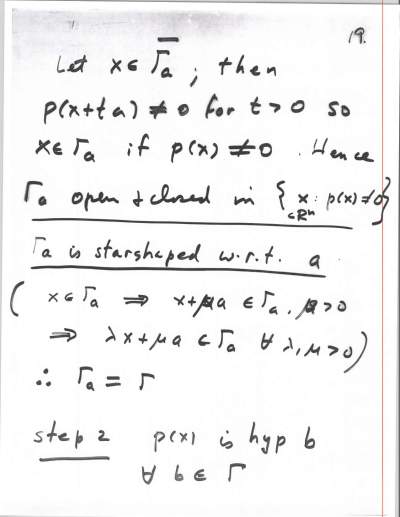 19.
Let x ∈ Γ̅a ; then
p(x+ta) ≠ 0 for t>0 so
x∈Γa if p(x) ≠0 . Hence
Γa open + closed in {x∈Rⁿ : p(x)≠0}
Γa is starshaped w.r.t. a .
( x∈Γa ⟹ x+μa ∈Γa, μ>0
⟹ λx+μa ∈Γa ∀ λ,μ>0 )
∴ Γa = Γ
step 2 p(x) is hyp b
∀ b∈ Γ